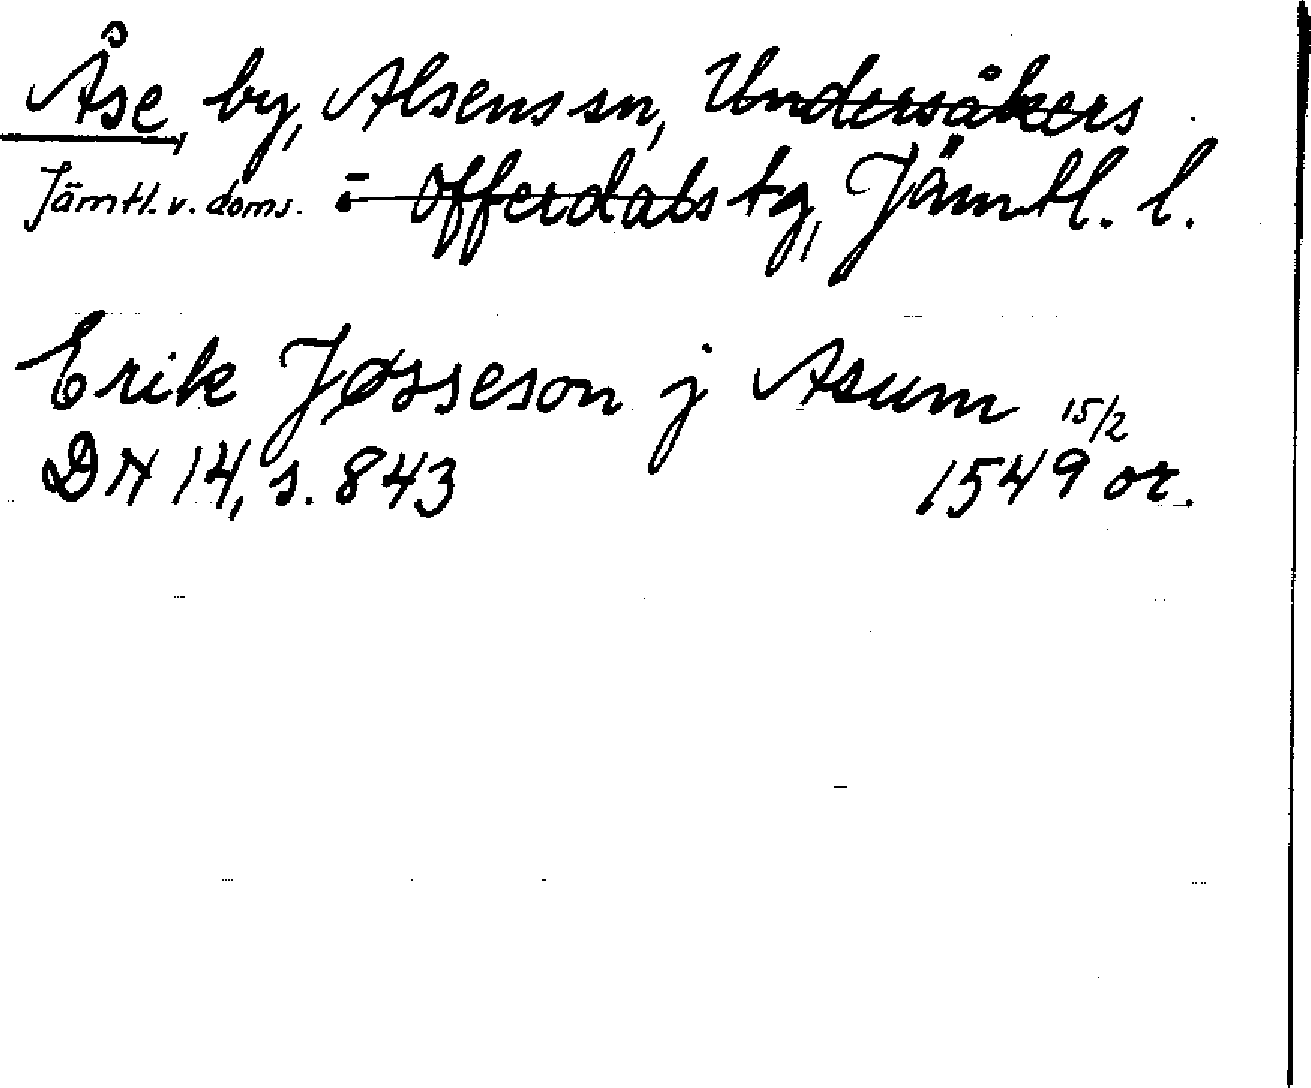 Åse by, Alsens sn, Undersåkers
Jämtl. v. doms. i Offerdals tg, Jämtl. l.
Erik Jøsseson j Asum 15/2
DN 14, s. 843 1549 or.